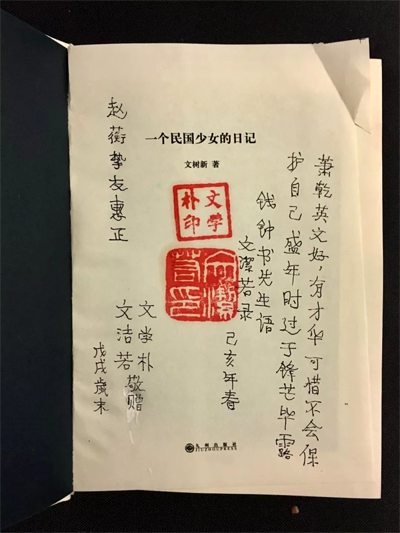 一个民国少女的日记
文树新 著
赵蘅挚友惠正
文学
朴印
文潔
若印
萧乾英文好,有才华可惜不会保
护自己盛年时过于锋芒毕露
钱钟书先生语
文潔若录
己亥年春
文学朴
文洁若敬赠
戊戌歲末
九州出版社
JIUZHOUPRESS